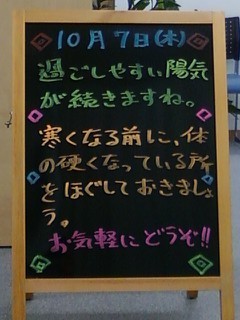 10月7日(木)
過ごしやすい陽気
が続きますね。
寒くなる前に、体
の硬くなっている所
をほぐしておきましょ
う。
お気軽にどうぞ!!